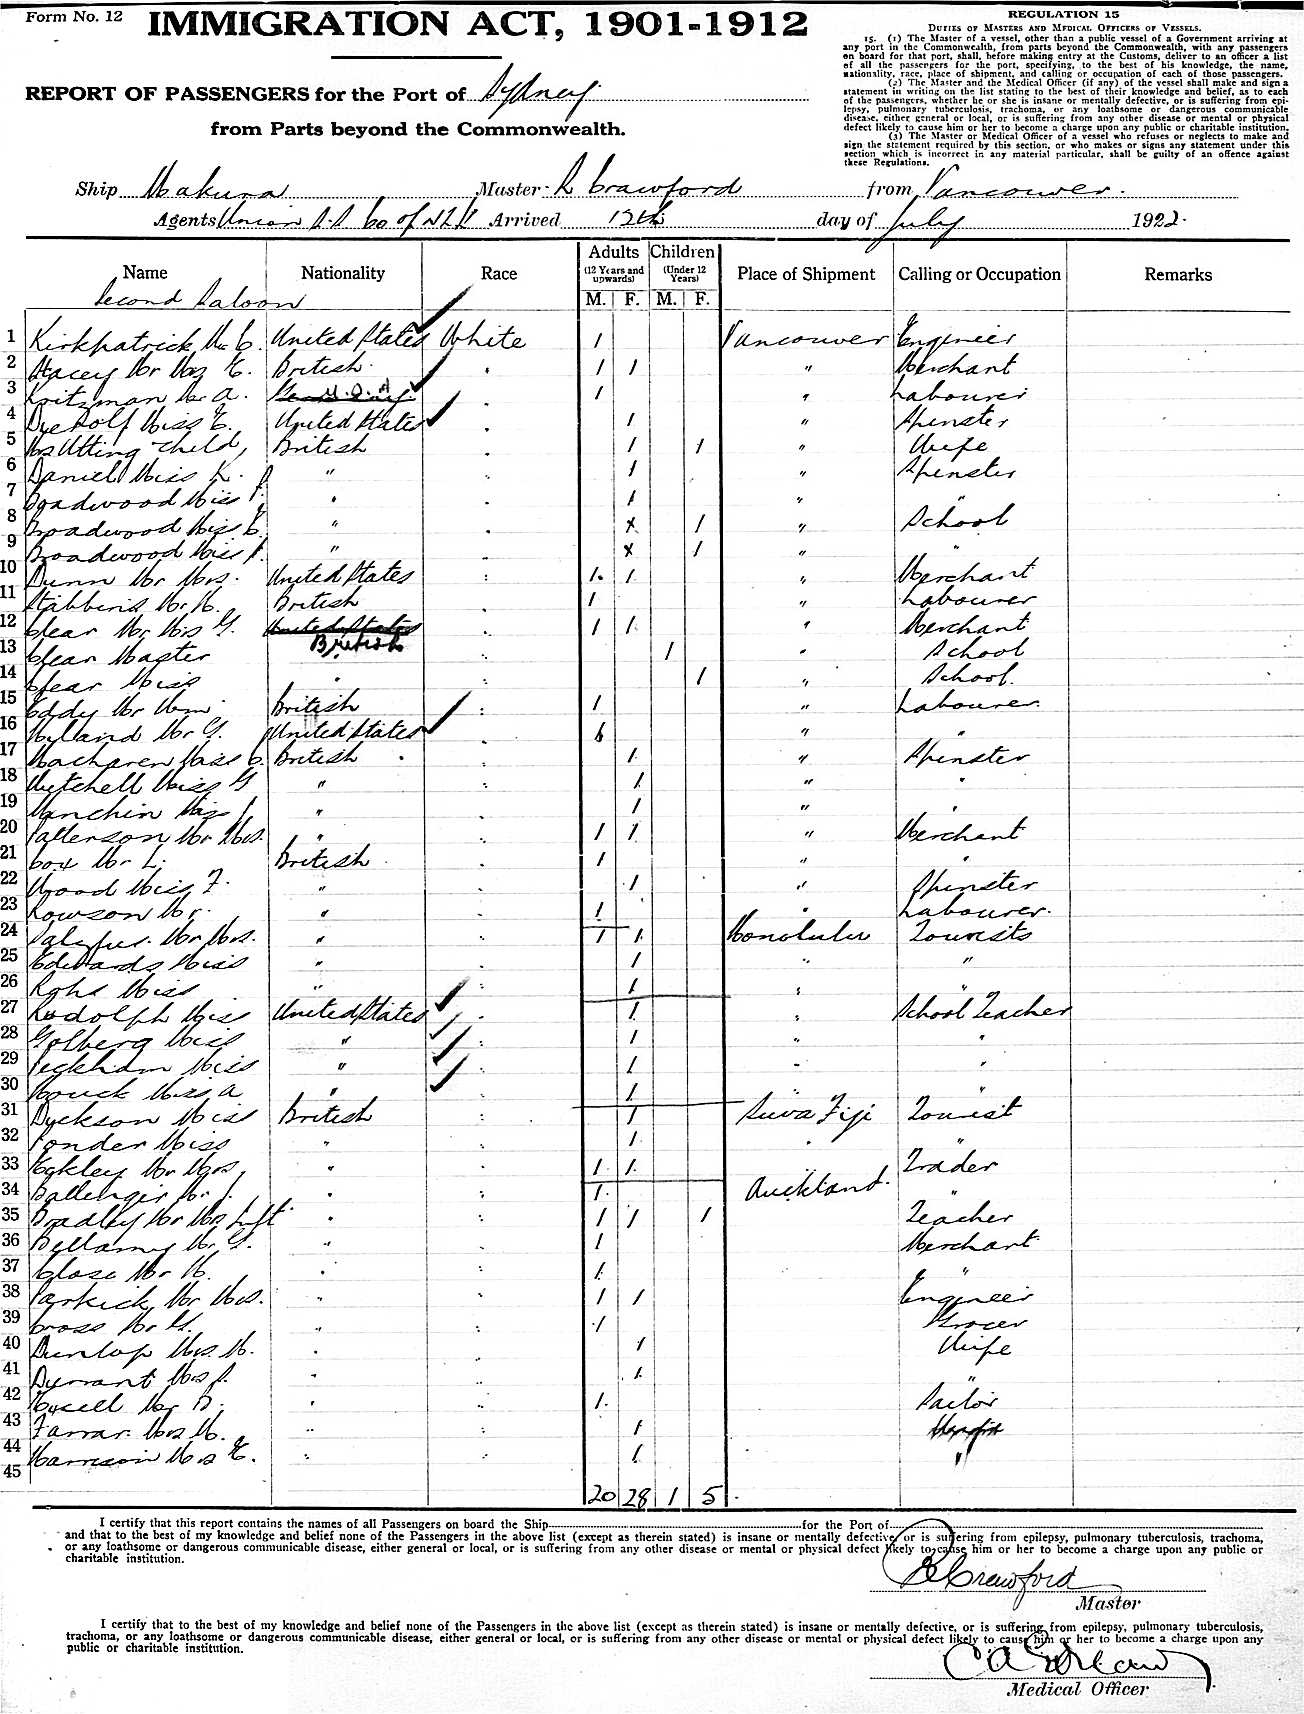 Form No. 12
IMMIGRATION ACT, 1901-1912
REGULATION 15
DUTIES OF MASTERS AND MEDICAL OFFICERS OF VESSELS.
15. (1) The Master of a vessel, other than a public vessel of a Government arriving at
any port in the Commonwealth, from parts beyond the Commonwealth, with any passengers
on board for that port, shall, before making entry at the Customs, deliver to an officer a list
of all the passengers for the port, specifying, to the best of his knowledge, the name,
nationality, race, place of shipment, and calling or occupation of each of those passengers.
(2) The Master and the Medical Officer (if any) of the vessel shall make and sign a
statement in writing on the list stating to the best of their knowledge and belief, as to each
of the passengers, whether he or she is insane or mentally defective, or is suffering from epi-
lepsy, pulmonary tuberculosis, trachoma, or any loathsome or dangerous communicable
disease, either general or local, or is suffering from any other disease or mental or physical
defect likely to cause him or her to become a charge upon any public or charitable institution.
(3) The Master or Medical Officer of a vessel who refuses or neglects to make and
sign the statement required by this section, or who makes or signs any statement under this
section which is incorrect in any material particular, shall be guilty of an offence against
these Regulations.
REPORT OF PASSENGERS for the Port of Sydney
from Parts beyond the Commonwealth.
Ship Makura Master R Crawford from Vancouver.
Agents Union S.S Co of NZ Ld Arrived 15th day of July 1922.
Name Nationality Race Adults (12 Years and upwards) Children (Under 12 Years) Place of Shipment Calling or Occupation Remarks
Second Saloon M. F. M. F.
1 Kirkpatrick Mr C. United States White 1 Vancouver Engineer
2 Stacey Mr Mrs E. British 1 1 " Merchant
3 Kritzman Mr A. U.S.A 1 " Labourer
4 Miss E. United States 1 " Spinster
5 Mrs Utting child, British 1 1 " Wife
6 Daniel Miss K. " 1 " Spinster
7 Broadwood Miss " 1 " "
8 Broadwood Miss E. " x 1 " School
9 Broadwood Miss " x 1 " "
10 Dunn Mr Mrs. United States 1 1 " Merchant
11 Stabbins Mr H. British 1 " Labourer
12 Clear Mr Mrs G. United States British 1 1 " Merchant
13 Clear Master 1 " School
14 Clear Miss " 1 " School.
15 Eddy Mr Wm. British 1 " Labourer
16 Hyland Mr G. United States 1 " "
17 Maclaren Miss C. British 1 " Spinster
18 Mitchell Miss G " 1 " "
19 Manchin Miss " 1 " "
20 Patterson Mr Mrs. " 1 1 " Merchant
21 Cox Mr L. British 1 " "
22 Wood Miss F. " 1 " Spinster
23 Rowson Mr. " 1 " Labourer.
24 Mr Mrs. " 1 1 Honolulu Tourists
25 Edwards Miss " 1 " "
26 Miss " 1 " "
27 Rodolph Miss United States 1 " School Teacher
28 Golberg Miss " 1 " "
29 Peckham Miss " 1 " "
30 Houck Miss A " 1 " "
31 Dyckson Miss British 1 Suva Fiji Tourist
32 Ponder Miss " 1 " "
33 Oakley Mr Mrs, " 1 1 Trader
34 Ballenger Mr J. " 1 Auckland. "
35 Bradley Mr Mrs Inft " 1 1 1 Teacher
36 Bellamy Mr G. " 1 Merchant
37 Close Mr H. " 1 "
38 Mr Mrs. " 1 1 Engineer
39 Cross Mr G. " 1 Grocer
40 Dunlop Mrs. M. " 1 Wife
41 Durrant Mrs " 1 "
42 Mr D. " 1 Sailor
43 Farrar Mrs M. " 1
44 Harrison Mrs E. " 1 "
45
20 28 1 5
I certify that this report contains the names of all Passengers on board the Ship for the Port of
and that to the best of my knowledge and belief none of the Passengers in the above list (except as therein stated) is insane or mentally defective, or is suffering from epilepsy, pulmonary tuberculosis, trachoma,
or any loathsome or dangerous communicable disease, either general or local, or is suffering from any other disease or mental or physical defect likely to cause him or her to become a charge upon any public or
charitable institution.
R Crawford
Master
I certify that to the best of my knowledge and belief none of the Passengers in the above list (except as therein stated) is insane or mentally defective, or is suffering from epilepsy, pulmonary tuberculosis,
trachoma, or any loathsome or dangerous communicable disease, either general or local, or is suffering from any other disease or mental or physical defect likely to cause him or her to become a charge upon any
public or charitable institution.
Medical Officer